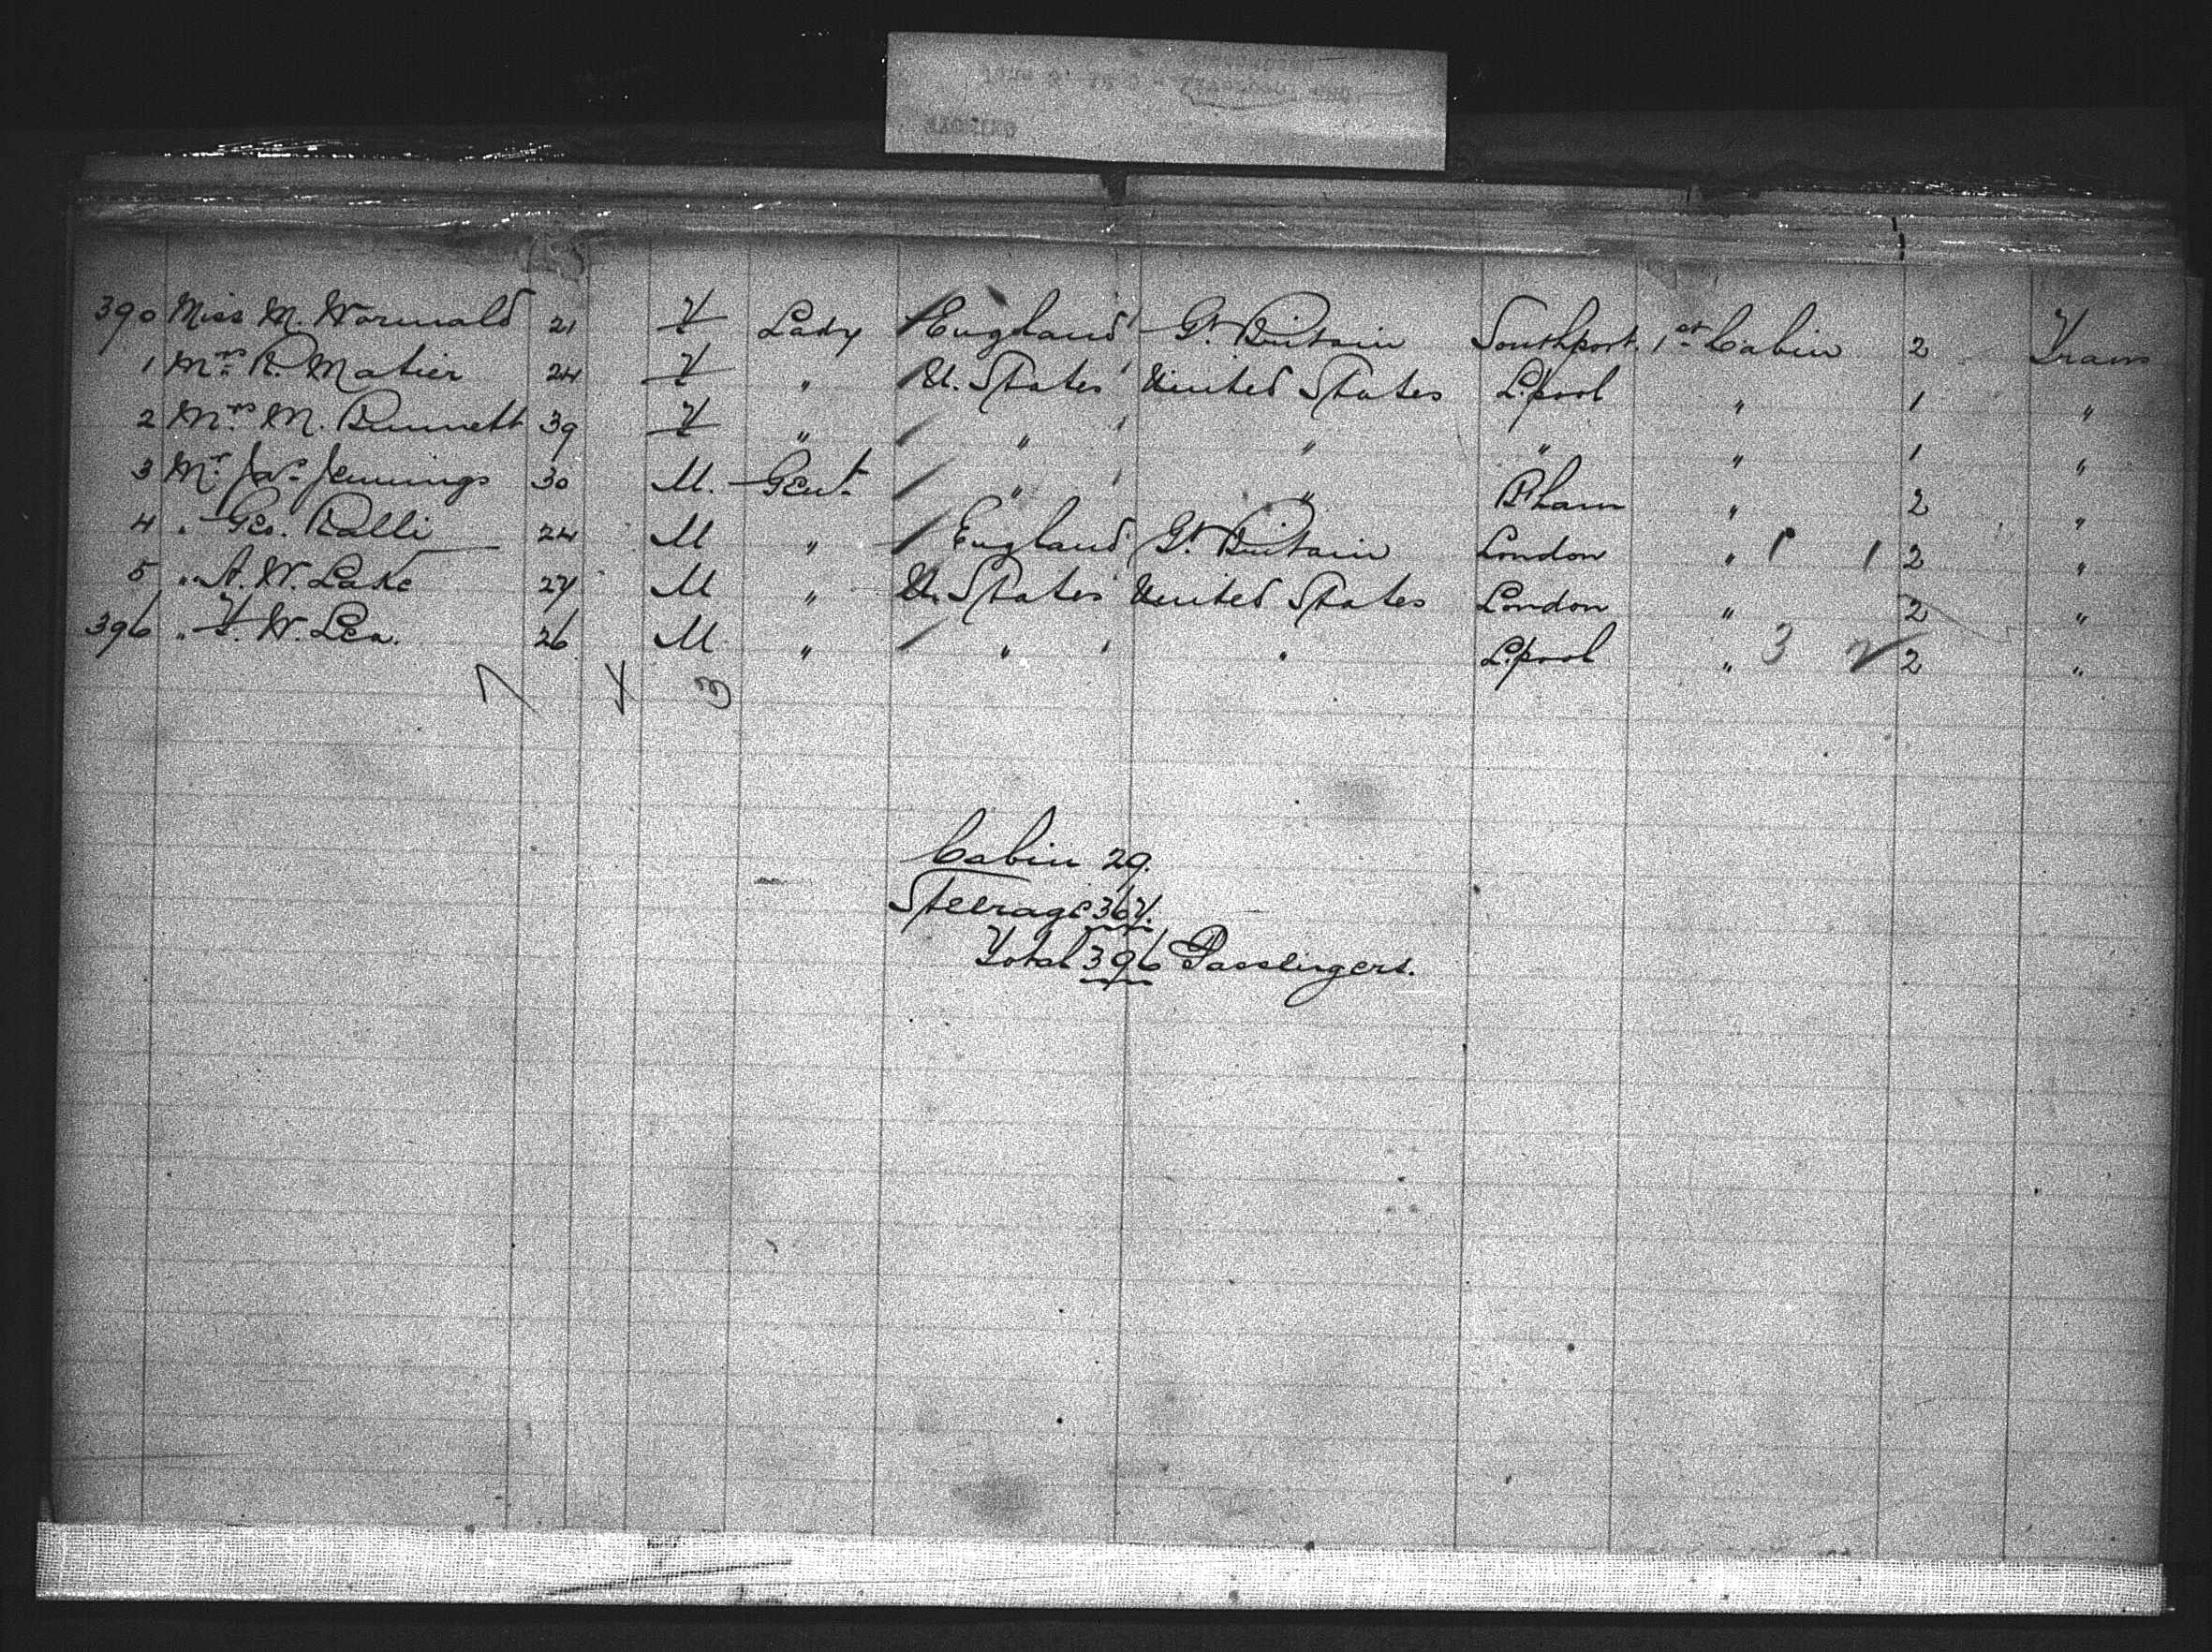 390 Miss M. Wormald 21 F Lady England Gt. Britain Southport 1st Cabin 2 Trans
1 Mrs R. Matier 24 F " U. States United States L.pool " 1 "
2 Mrs M. Bennett 39 F " " " " " 1 "
3 Mr. Jas. Jennings 30 M. Gent. " " B'ham " 2 "
4 " Geo. Ralli 24 M " England Gt. Britain London " 1 1 2 "
5 " A. W. Lake 27 M " U. States United States London " 2 "
396 " F. W. Lea. 26 M " " " L.pool " 3 2 "
7 4 3
Cabin 29.
Steerage 367.
Total 396 Passengers.